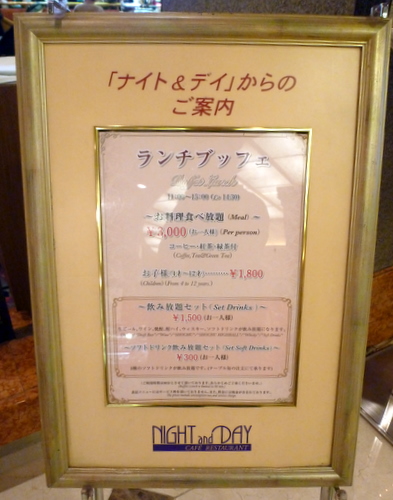 「ナイト&デイ」からの
ご案内
ランチブッフェ
Buffet Lunch
11:30~15:00 (Lo 14:30)
~お料理食べ放題 (Meal) ~
¥3,000 (お一人様) (Per person)
コーヒー・紅茶・緑茶付
(Coffee, Tea&Green Tea)
お子様 (4才~12才)………¥1,800
(Children) (From 4 to 12 years)
~飲み放題セット (Set Drinks) ~
¥1,500 (お一人様)
~ソフトドリンク飲み放題セット (Set Soft Drinks) ~
¥300 (お一人様)
NIGHT and DAY
CAFE RESTAURANT